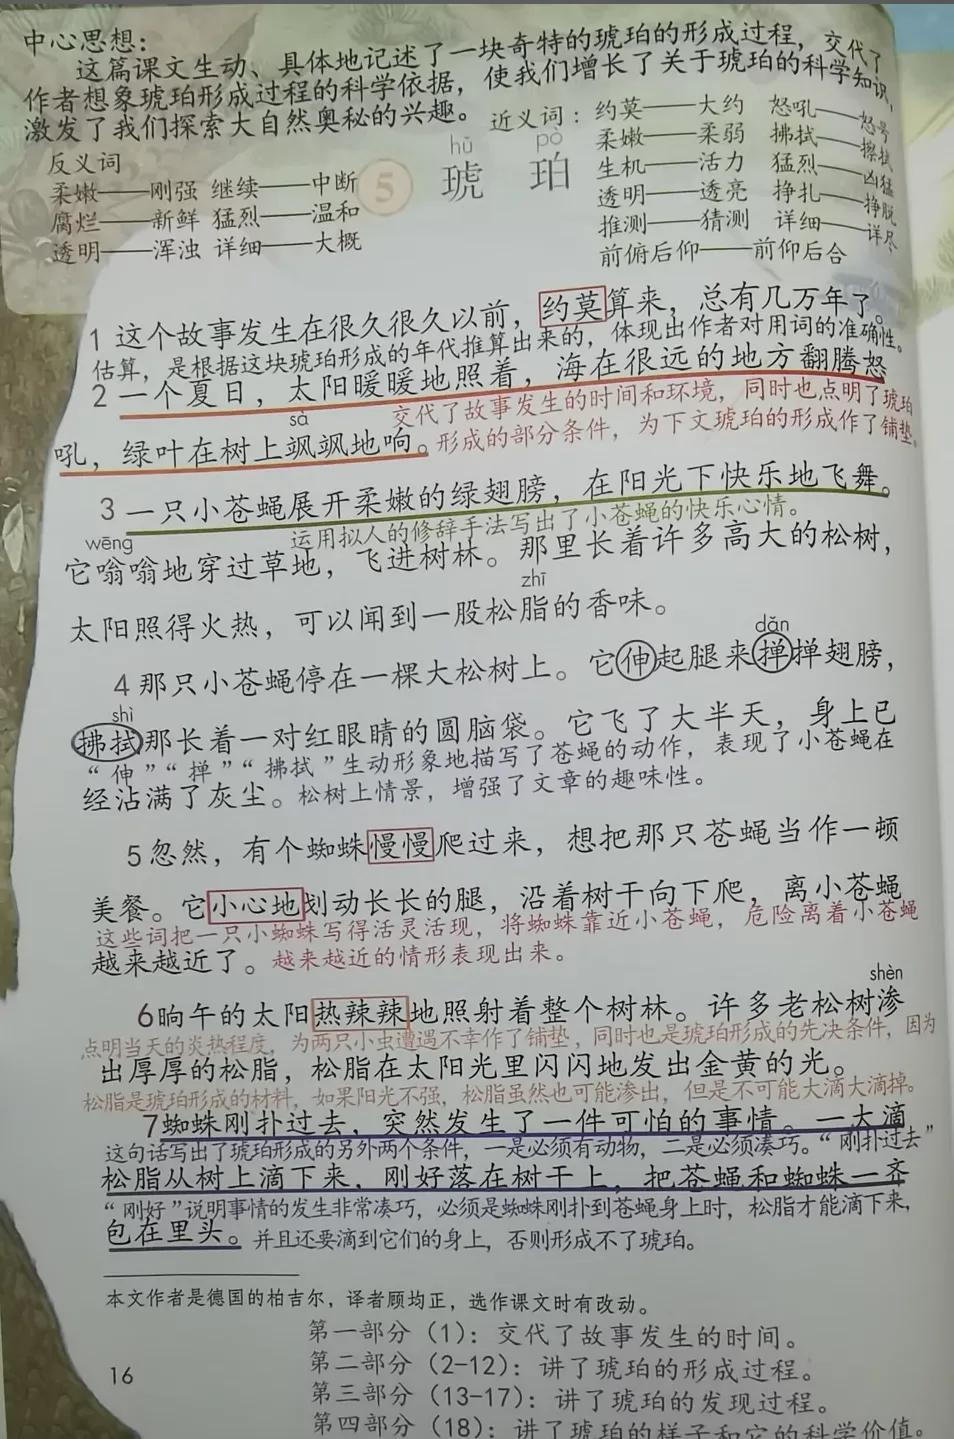 中心思想：
这篇课文生动、具体地记述了一块奇特的琥珀的形成过程，交代了
作者想象琥珀形成过程的科学依据，使我们增长了关于琥珀的科学知识，
激发了我们探索大自然奥秘的兴趣。
近义词：约莫——大约 怒吼——怒号
柔嫩——柔弱 拂拭——擦拭
生机——活力 猛烈——凶猛
透明——透亮 挣扎——挣脱
推测——猜测 详细——详尽
前俯后仰——前仰后合
反义词
柔嫩——刚强 继续——中断
腐烂——新鲜 猛烈——温和
透明——浑浊 详细——大概
hǔ pò
5 琥珀
1 这个故事发生在很久很久以前，约莫算来，总有几万年了。
估算，是根据这块琥珀形成的年代推算出来的，体现出作者对用词的准确性。
2 一个夏日，太阳暖暖地照着，海在很远的地方翻腾怒
交代了故事发生的时间和环境，同时也点明了琥珀
sà
吼，绿叶在树上飒飒地响。
形成的部分条件，为下文琥珀的形成作了铺垫。
3 一只小苍蝇展开柔嫩的绿翅膀，在阳光下快乐地飞舞。
运用拟人的修辞手法写出了小苍蝇的快乐心情。
wēng
它嗡嗡地穿过草地，飞进树林。那里长着许多高大的松树，
zhī
太阳照得火热，可以闻到一股松脂的香味。
dǎn
4 那只小苍蝇停在一棵大松树上。它伸起腿来掸掸翅膀，
shì
拂拭那长着一对红眼睛的圆脑袋。它飞了大半天，身上已
“伸”“掸”“拂拭”生动形象地描写了苍蝇的动作，表现了小苍蝇在
经沾满了灰尘。
松树上情景，增强了文章的趣味性。
5 忽然，有个蜘蛛慢慢爬过来，想把那只苍蝇当作一顿
美餐。它小心地划动长长的腿，沿着树干向下爬，离小苍蝇
这些词把一只小蜘蛛写得活灵活现，将蜘蛛靠近小苍蝇，危险离着小苍蝇
越来越近了。
越来越近的情形表现出来。
shèn
6 晌午的太阳热辣辣地照射着整个树林。许多老松树渗
点明当天的炎热程度，为两只小虫遭遇不幸作了铺垫，同时也是琥珀形成的先决条件，因为
出厚厚的松脂，松脂在太阳光里闪闪地发出金黄的光。
松脂是琥珀形成的材料，如果阳光不强，松脂虽然也可能渗出，但是不可能大滴大滴掉。
7 蜘蛛刚扑过去，突然发生了一件可怕的事情。一大滴
这句话写出了琥珀形成的另外两个条件，一是必须有动物，二是必须凑巧。“刚扑过去”
松脂从树上滴下来，刚好落在树干上，把苍蝇和蜘蛛一齐
“刚好”说明事情的发生非常凑巧，必须是蜘蛛刚扑到苍蝇身上时，松脂才能滴下来，
包在里头。
并且还要滴到它们的身上，否则形成不了琥珀。
本文作者是德国的柏吉尔，译者顾均正，选作课文时有改动。
第一部分（1）：交代了故事发生的时间。
第二部分（2-12）：讲了琥珀的形成过程。
第三部分（13-17）：讲了琥珀的发现过程。
第四部分（18）：讲了琥珀的样子和它的科学价值。
16